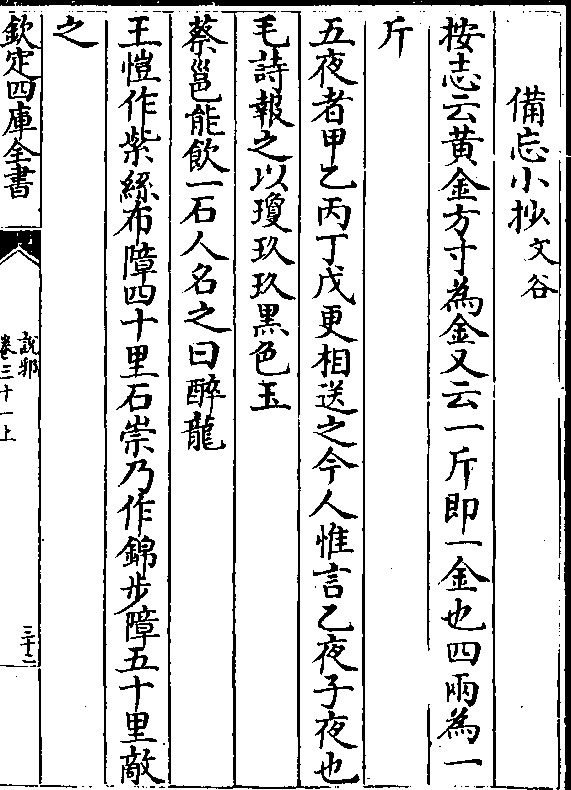 備忘小抄文谷
按志云黄金方寸為金又云一斤即一金也四兩為一
斤
五夜者甲乙丙丁戊更相送之今人惟言乙夜子夜也
毛詩報之以瓊玖玖黑色玉
蔡邕能飲一石人名之曰醉龍
王愷作紫絲布障四十里石崇乃作錦步障五十里敵
之
欽定四庫全書
說郛
卷三十一上
三十二